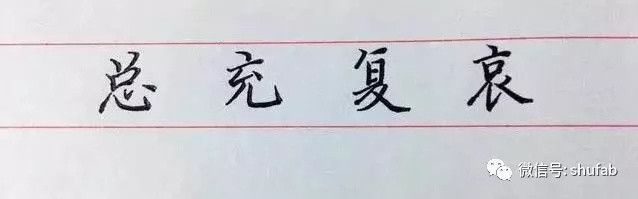 总充复哀
微信号: shufab